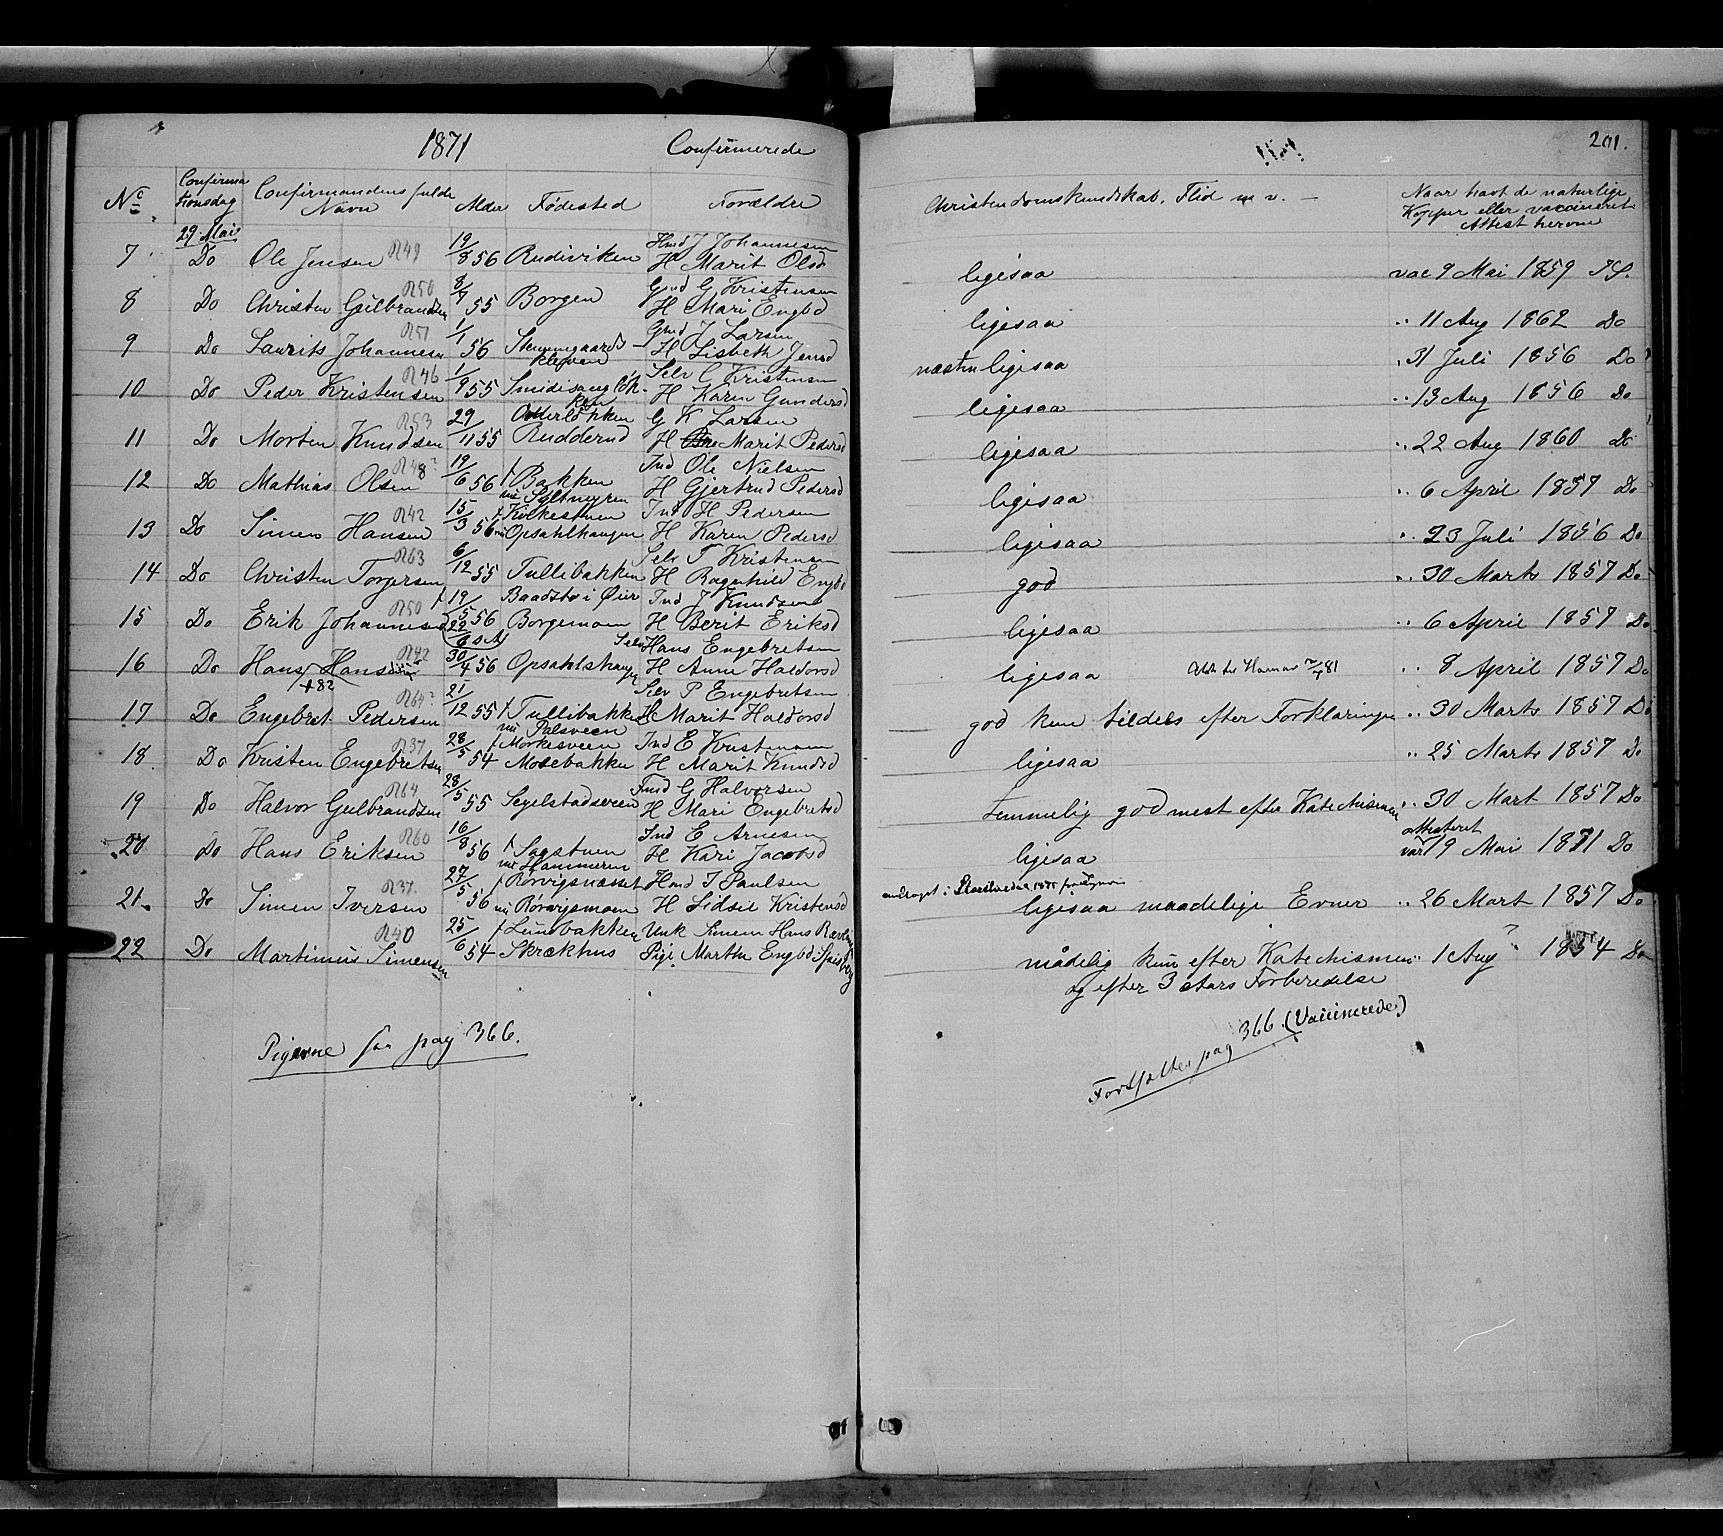 1871 Confirmerede
No Confirmationsdag Confirmandens fulde Navn Alder Födested Forældre
29 Mai
7 Do Ole Jensen R49 19/8 56 Rudiviken Hmd J Johannesen
H Marit Olsd
8 Do Christen Gulbrandsen R50 8/7 55 Borgen Gmd G Kristensen
H Mari Engbd
9 Do Laurits Johannesen R51 1/1 56 Gmd J Larsen
H Lisbeth Jensd
10 Do Peder Kristensen R46 1/9 55 Selv C Kristensen
H Karen Gundersd
11 Do Morten Knudsen R53 29/11 55 Rudderud G K Larsen
H Marit Pedersd
12 Do Mathias Olsen R48? 19/6 56 f Bakken Ind Ole Nielsen
H Gjertrud Pedersd
13 Do Simen Hansen R42 15/3 56 nu Opsahlhaugen Ind H Pedersen
H Karen Pedersd
14 Do Christen Torgersen R63 6/12 55 Tullibakken Selv T Kristensen
H Ragnhild Engbd
15 Do Erik Johannesen R50 f 19/5 56 Baadstö i Öier Ind J Knudsen
Borgemoen H Berit Eriksd
16 Do Hans Hansen R42 30/4 56 Opsahlshaugen Selv Hans Engebretsen
+82 H Anne Haldorsd
17 Do Engebret Pedersen R64? 21/12 55 f Tullibakken Selv P Engebretsen
nu Palsveen H Marit Haldorsd
18 Do Kristen Engebretsen R37 28/5 54 f Morkesveen Ind E Kristensen
Mosebakken H Marit Knudsd
19 Do Halvor Gulbrandsen R64 28/5 55 Segelstadsveen G Halvorsen
H Mari Engebretsd
20 Do Hans Eriksen R60 16/8 56 f Sagstuen Ind E Arnesen
nu Hammeren H Kari Jacobsd
21 Do Simen Iversen R37. 27/5 56 f Rörvigsnæsset Hmd I Paulsen
nu Rörvigsmoen H Sidsil Kristensd
22 Do Martinus Simensen R40 25/6 54 f Lunsbakken Unk Simen Hans
Skrækhus Pige Martha Engbd
Pigerne see pag 366.
201.
Christendomskundskab, Flid m v. Naar havt de naturlige Kopper eller vaccineret Attest herom
ligesaa vac 9 Mai 1859
ligesaa " 11 Aug 1862 Do
næsten ligesaa " 31 Juli 1856 Do
ligesaa " 13 Aug 1856 Do
ligesaa " 22 Aug 1860 Do
ligesaa " 6 April 1857 Do
ligesaa " 23 Juli 1856 Do
god " 30 Marts 1857 Do
ligesaa " 6 April 1857 Do
ligesaa Hamar 81 " 8 April 1857 Do
god kun tildels efter Forklaringen " 30 Marts 1857 Do
ligesaa " 25 Marts 1857 Do
temmelig god mest efter Katechismen " 30 Mart 1857 Do
attesteret
ligesaa var 19 Mai 1871 Do
ligesaa maadelige Evner " 26 Mart 1857 Do
mådelig kun efter Katechismen " 1 Aug? 1854 Do
og efter 3 Aars Forberedelse
Fortsættes pag 366. (Vaccinerede)